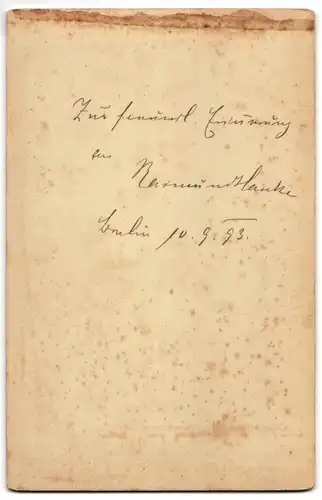 Zur freundl. Erinnerung
an
Raimund Hanke
Berlin 10. 9. 93.